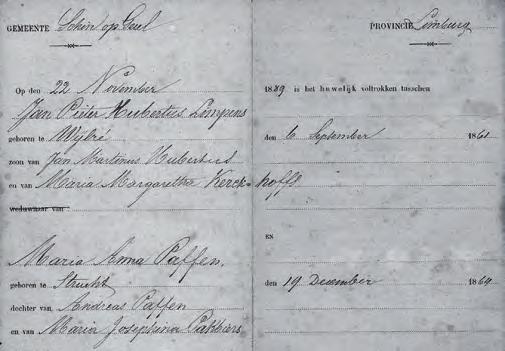 GEMEENTE Schin op Geul PROVINCIE Limburg
Op den 22 November 1889 is het huwelijk voltrokken tusschen
Jan Pieter Hubertus Limpens
geboren te Wijlré den 6 September 1861
zoon van Jan Martinus Hubertus
en van Maria Margaretha Kerckhoffs
weduwnaar van
EN
Maria Anna Paffen.
geboren te Strucht den 19 December 1864
dochter van Andreas Paffen
en van Maria Josephina Pakbiers